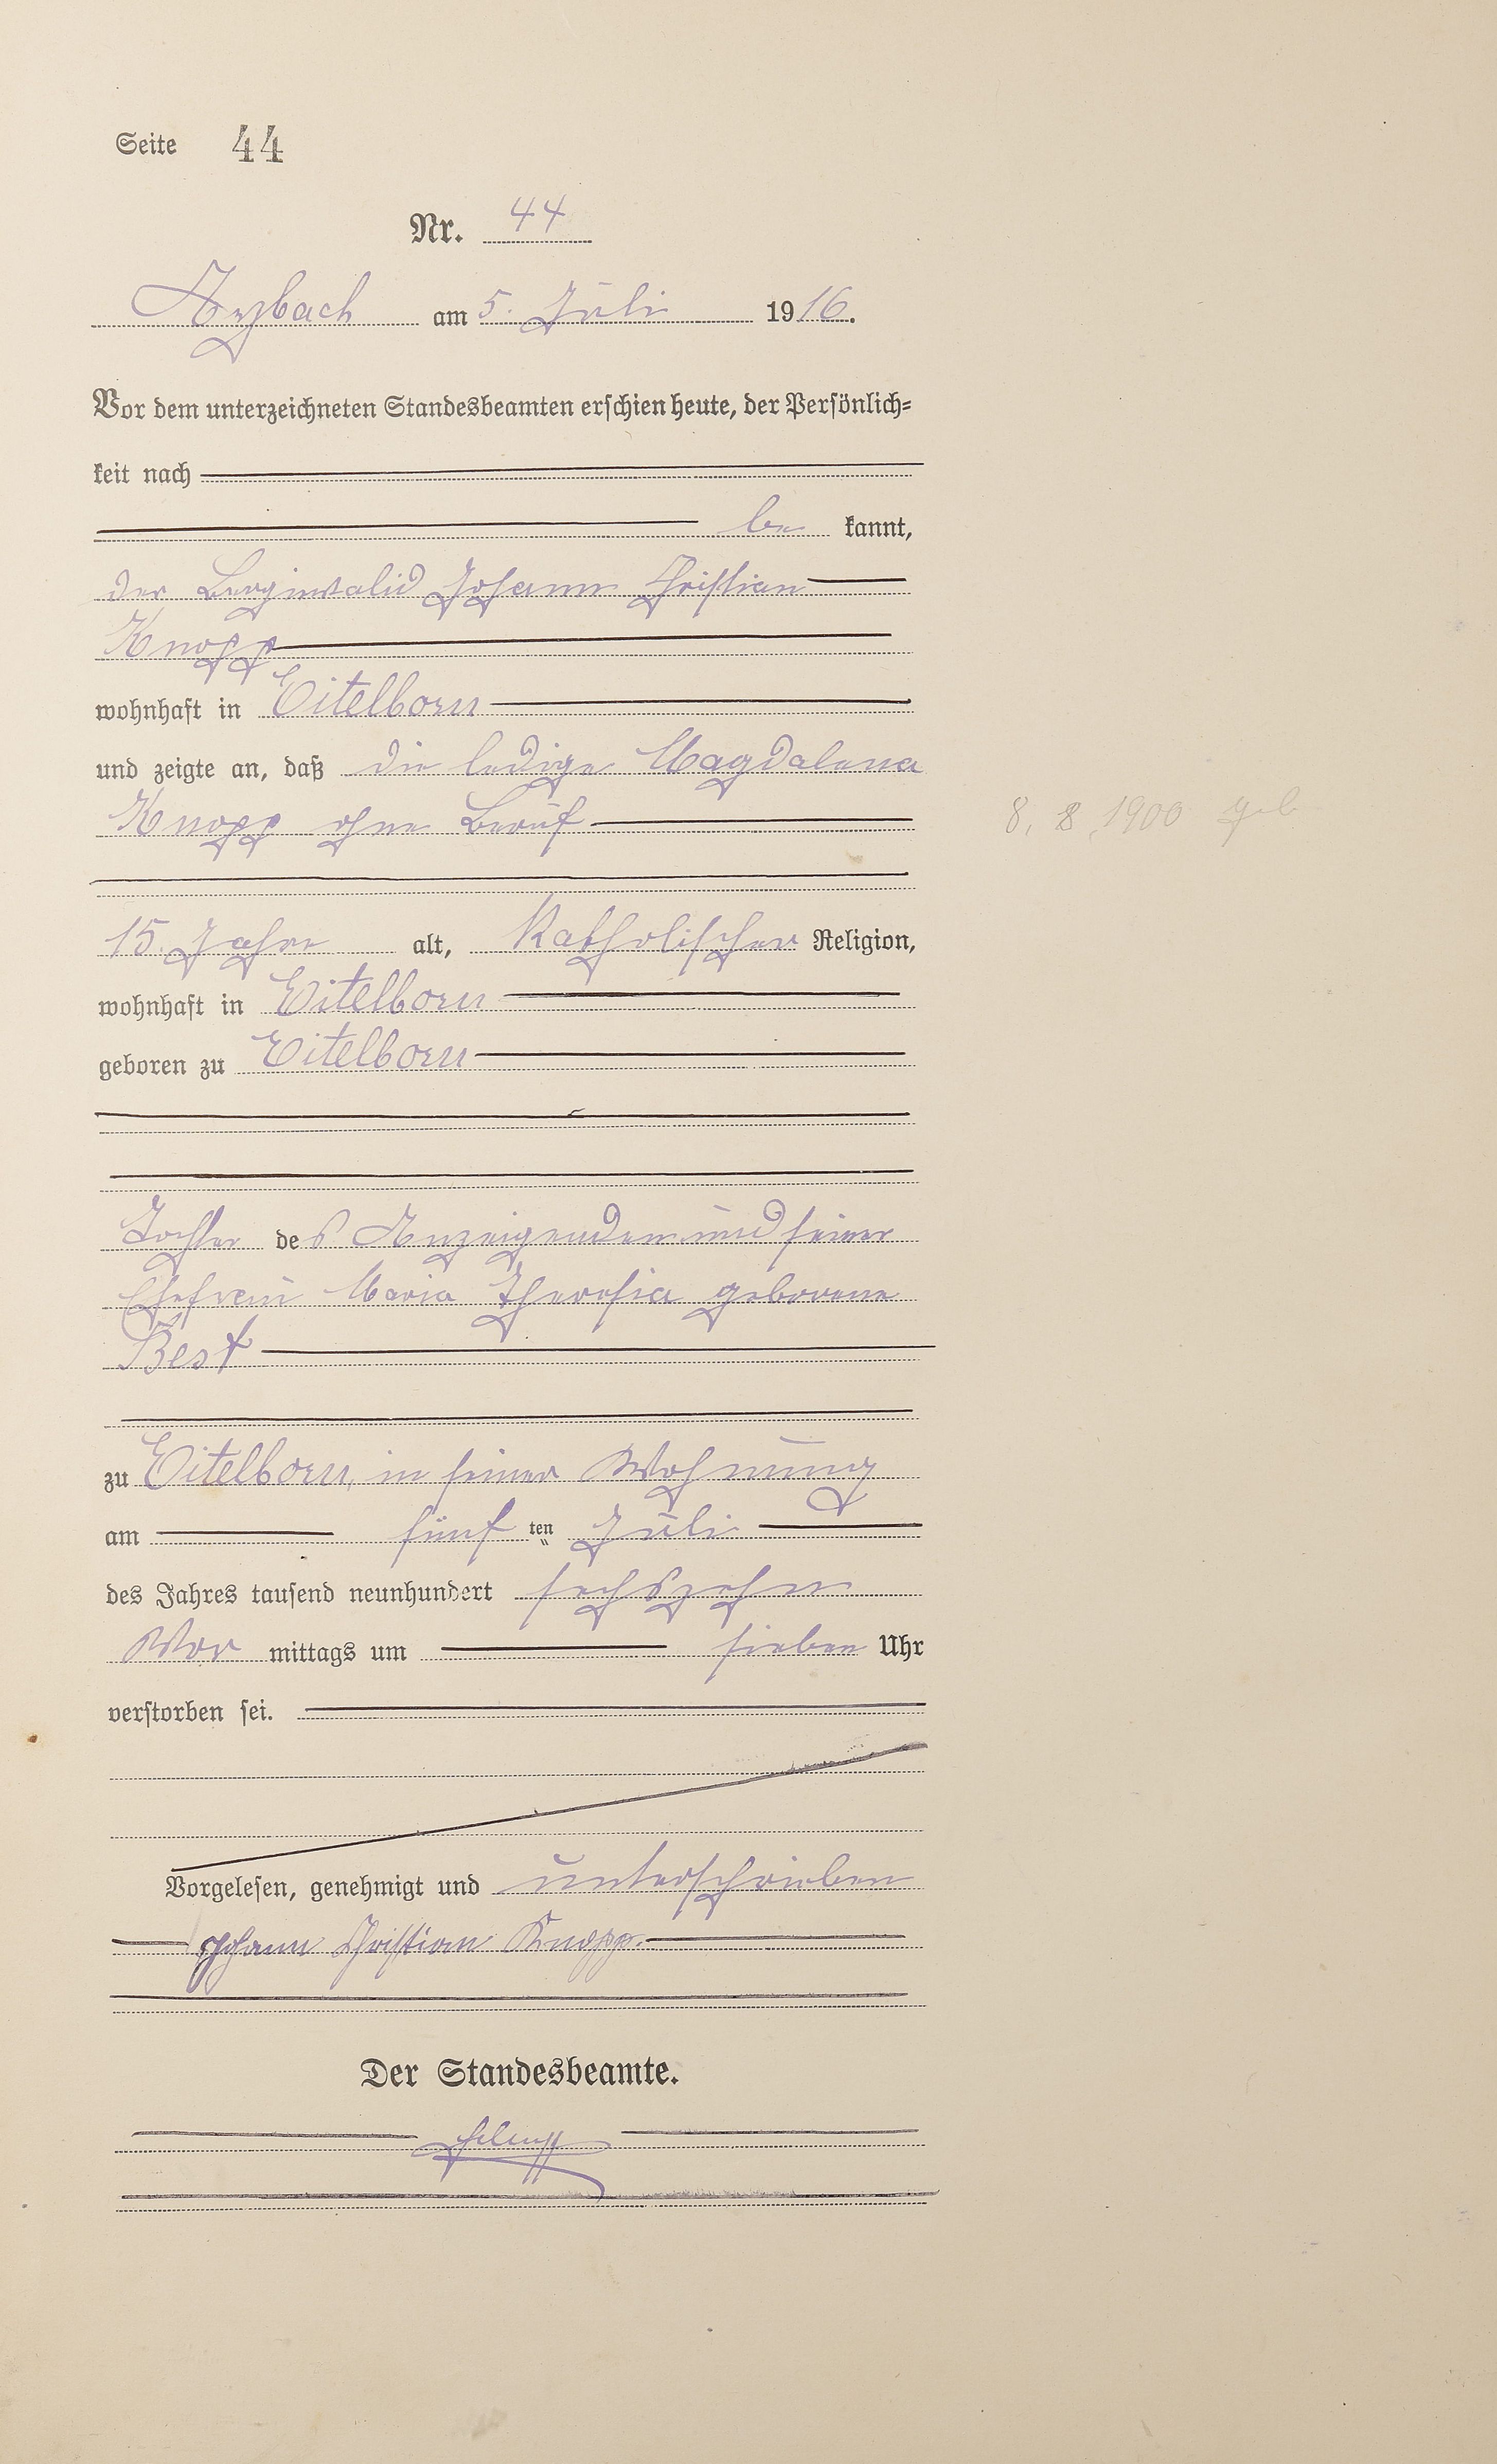 Seite 44
Nr. 44
Arzbach am 5. Juli 1916.
Vor dem unterzeichneten Standesbeamten erschien heute, der Persönlich=
keit nach
be kannt,
der Berginvalid Johann Christian
Knopp
wohnhaft in Eitelborn
und zeigte an, daß die ledige Magdalena
Knopp ohne Beruf
8. 8. 1900 geb
15 Jahre alt, Katholischer Religion,
wohnhaft in Eitelborn
geboren zu Eitelborn
Tochter des Anzeigenden und seiner
Ehefrau Maria Theresia geborene
Best
zu Eitelborn, in seiner Wohnung
am fünf ten Juli
des Jahres tausend neunhundert sechszehn
Vor mittags um sieben Uhr
verstorben sei.
Vorgelesen, genehmigt und unterschrieben
Johann Christian Knopp.
Der Standesbeamte.